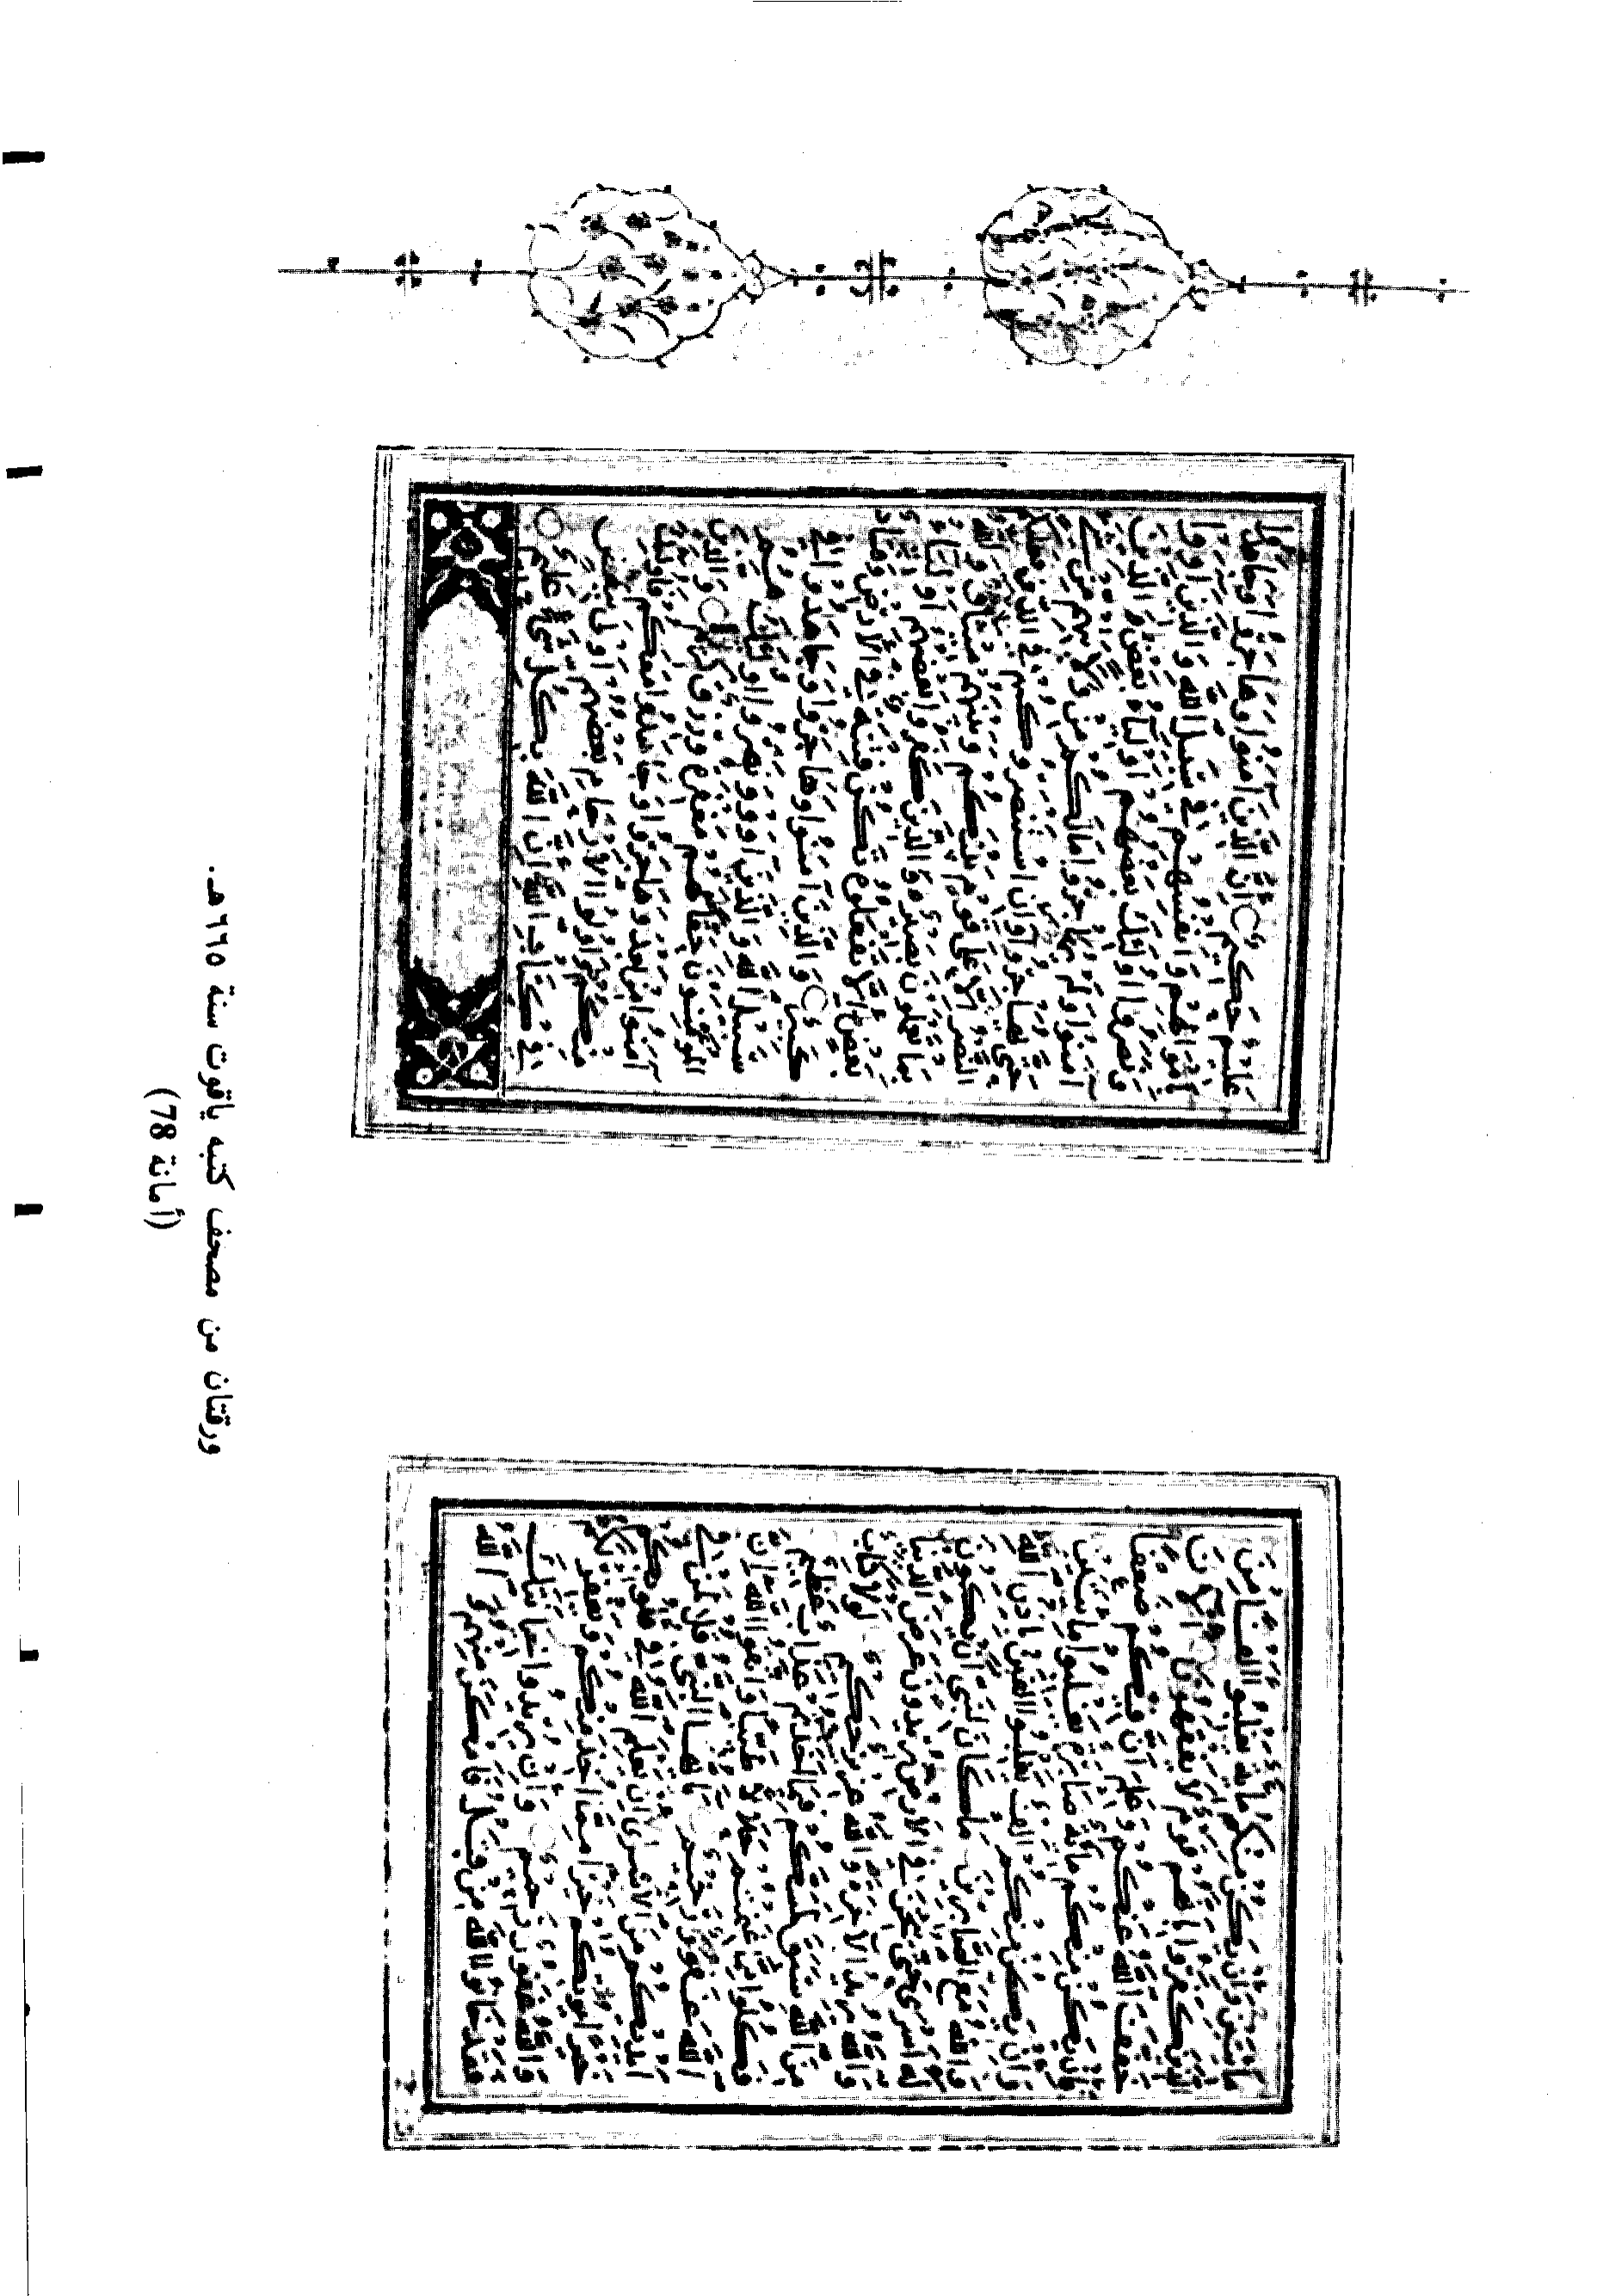 مائتين وان يكن منكم مائة يغلبوا الفا من
الذين كفروا بانهم قوم لا يفقهون الآن
خفف الله عنكم وعلم ان فيكم ضعفا
فان يكن منكم مائة صابرة يغلبوا مائتين
وان يكن منكم الف يغلبوا الفين باذن الله
والله مع الصابرين ما كان لنبي ان يكون
له اسرى حتى يثخن في الارض تريدون عرض الدنيا
والله يريد الآخرة والله عزيز حكيم لولا كتاب
من الله سبق لمسكم فيما اخذتم عذاب عظيم
فكلوا مما غنمتم حلالا طيبا واتقوا الله ان
الله غفور رحيم يا ايها النبي قل لمن في
ايديكم من الاسرى ان يعلم الله في قلوبكم
خيرا يؤتكم خيرا مما اخذ منكم ويغفر لكم
والله غفور رحيم وان يريدوا خيانتك
فقد خانوا الله من قبل فامكن منهم والله
عليم حكيم ان الذين آمنوا وهاجروا وجاهدوا
باموالهم وانفسهم في سبيل الله والذين آووا
ونصروا اولئك بعضهم اولياء بعض والذين
آمنوا ولم يهاجروا ما لكم من ولايتهم من شيء
حتى يهاجروا وان استنصروكم في الدين فعليكم
النصر الا على قوم بينكم وبينهم ميثاق والله
بما تعملون بصير والذين كفروا بعضهم اولياء
بعض الا تفعلوه تكن فتنة في الارض وفساد
كبير والذين آمنوا وهاجروا وجاهدوا في
سبيل الله والذين آووا ونصروا اولئك هم
المؤمنون حقا لهم مغفرة ورزق كريم والذين
آمنوا من بعد وهاجروا وجاهدوا معكم فاولئك
منكم واولوا الارحام بعضهم اولى ببعض
في كتاب الله ان الله بكل شيء عليم
ورقتان من مصحف كتبه ياقوت سنة ٦٦٥هـ.
(أمانة 78)